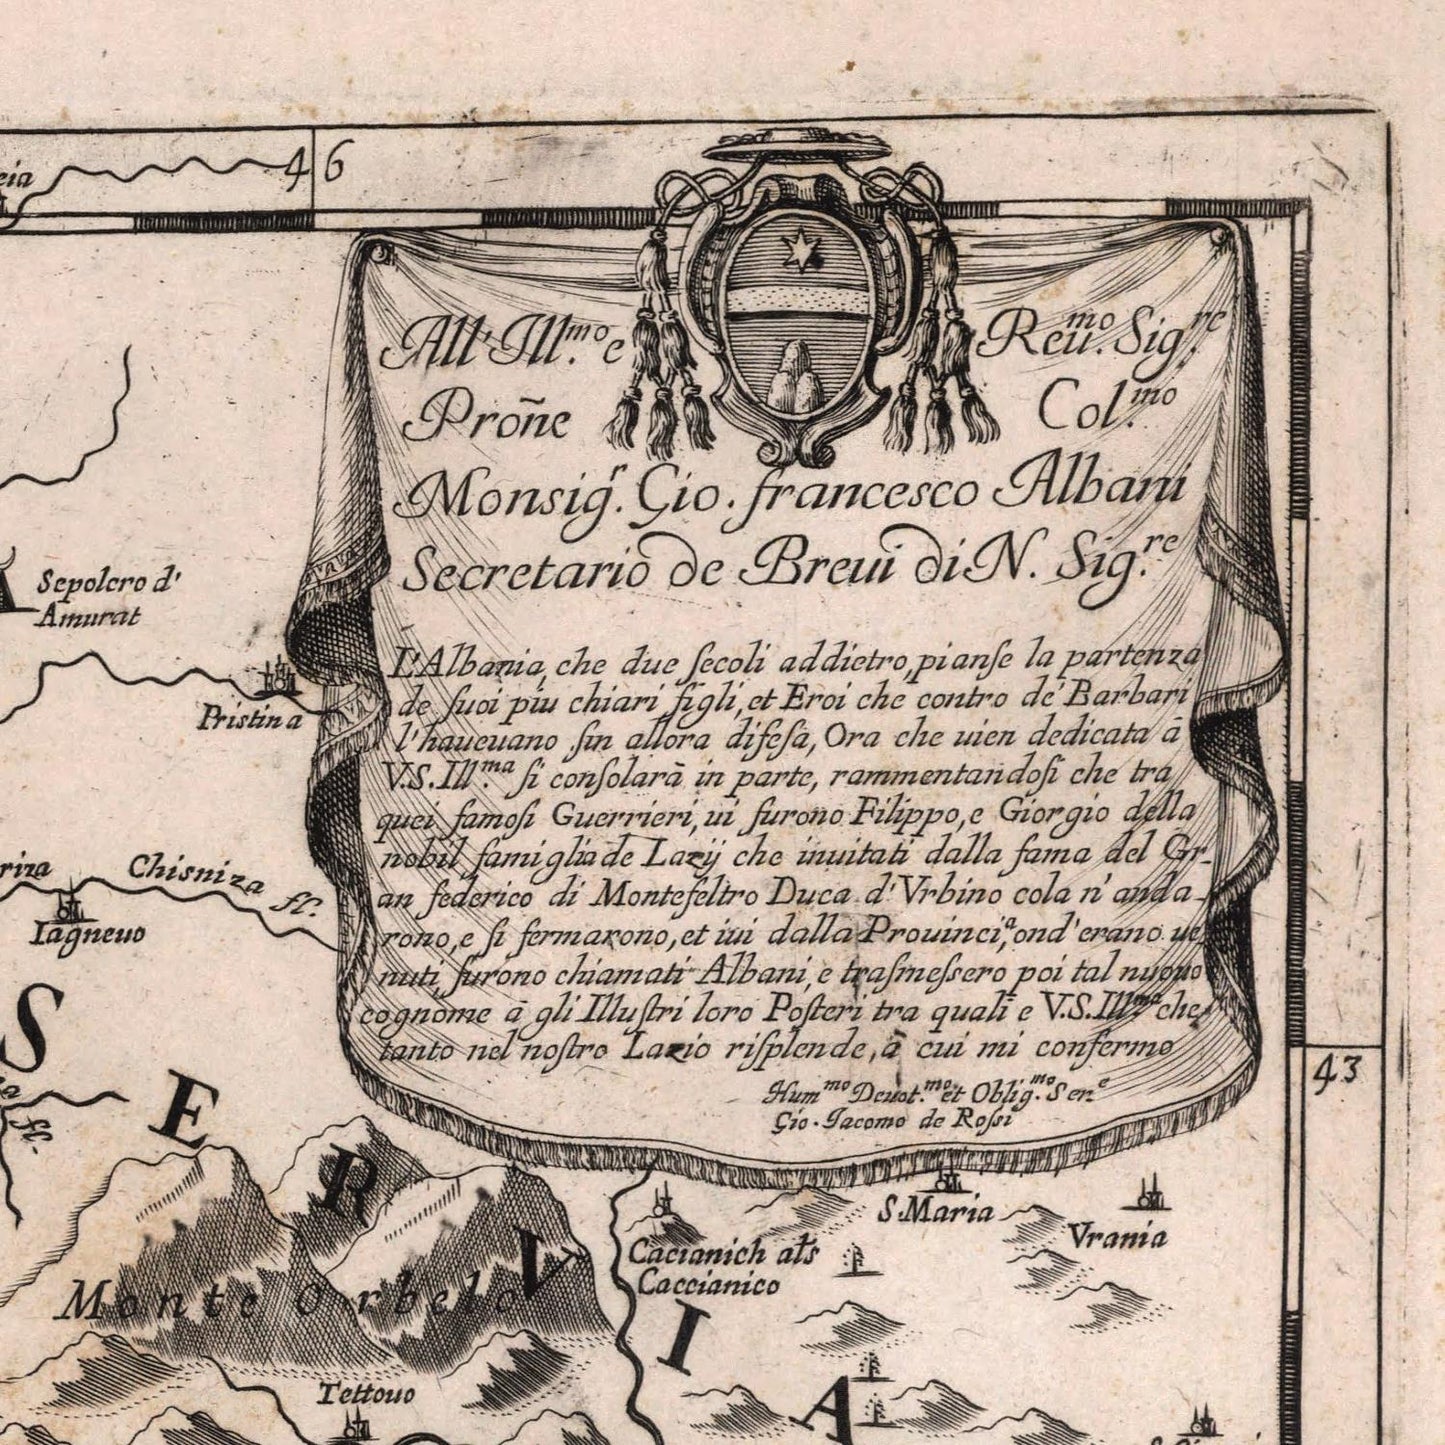 eia
46
All' Ill.mo e Reu.mo Sig.re
Proñe Col.mo
Monsig.r Gio. francesco Albani
Secretario de Breui di N. Sig.re
L'Albania, che due ſecoli addietro, pianſe la partenza
de ſuoi piu chiari figli, et Eroi che contro de' Barbari
l'haueuano ſin allora difeſa, Ora che uien dedicata ā
V.S.Ill.ma ſi conſolarā in parte, rammentandoſi che tra
quei famoſi Guerrieri, ui furono Filippo, e Giorgio della
nobil famiglia de Lazij che inuitati dalla fama del Gr-
an federico di Montefeltro Duca d'Vrbino cola n'anda-
rono, e ſi fermarono, et iui dalla Prouincia, ond'erano ue
nuti, furono chiamati Albani, e traſmeſsero poi tal nuouo
cognome ā gli Illuſtri loro Poſteri tra quali e V.S.Ill.ma che
tanto nel noſtro Lazio riſplende, ā cui mi confermo
Hum.mo Deuot.mo et Oblig.mo Ser.e
Gio. Iacomo de Roſsi
Sepolcro d'
Amurat
Pristina
Chisniza fl.
Iagneuo
43
S E R V I A
Monte Orbelo
S. Maria
Vrania
Cacianich als
Caccianico
Tettouo